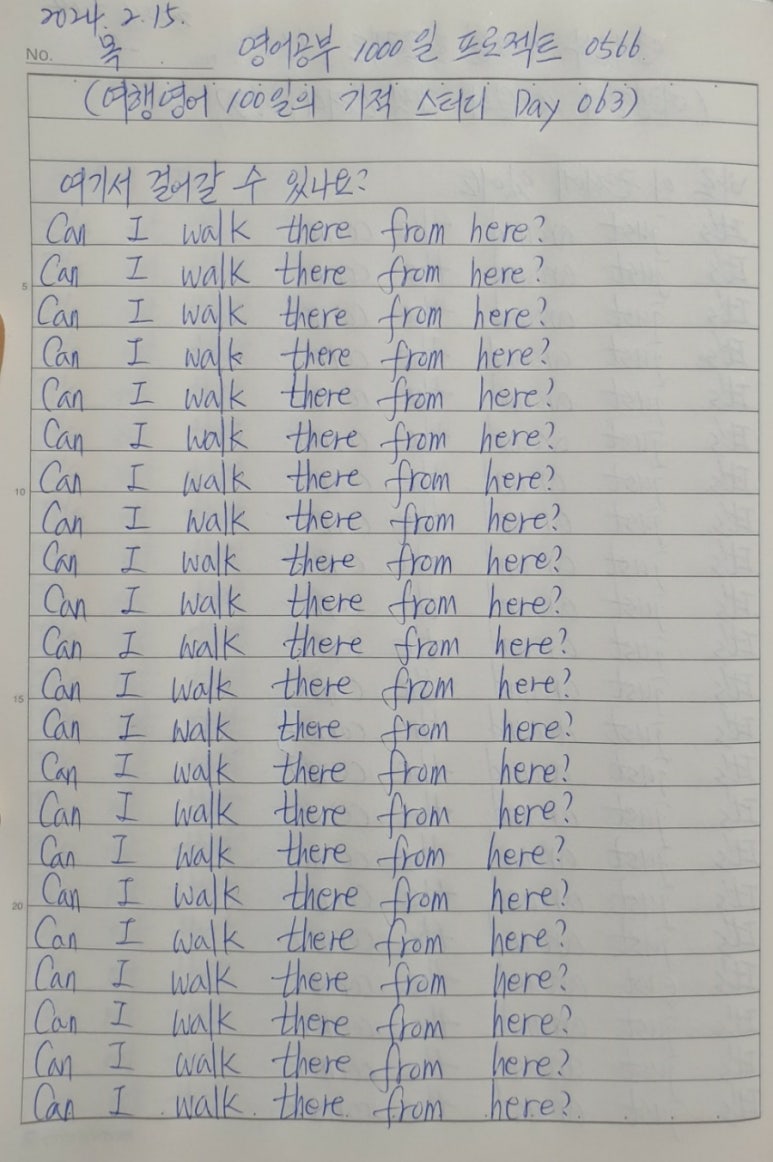 2024. 2. 15.
No. 목 영어공부 1000일 프로젝트 0566
(여행영어 100일의 기적 스터디 Day 063)
여기서 걸어갈 수 있나요?
Can I walk there from here?
5 Can I walk there from here?
Can I walk there from here?
Can I walk there from here?
Can I walk there from here?
Can I walk there from here?
10 Can I walk there from here?
Can I walk there from here?
Can I walk there from here?
Can I walk there from here?
Can I walk there from here?
15 Can I walk there from here?
Can I walk there from here?
Can I walk there from here?
Can I walk there from here?
Can I walk there from here?
20 Can I walk there from here?
Can I walk there from here?
Can I walk there from here?
Can I walk there from here?
Can I walk there from here?
Can I walk there from here?